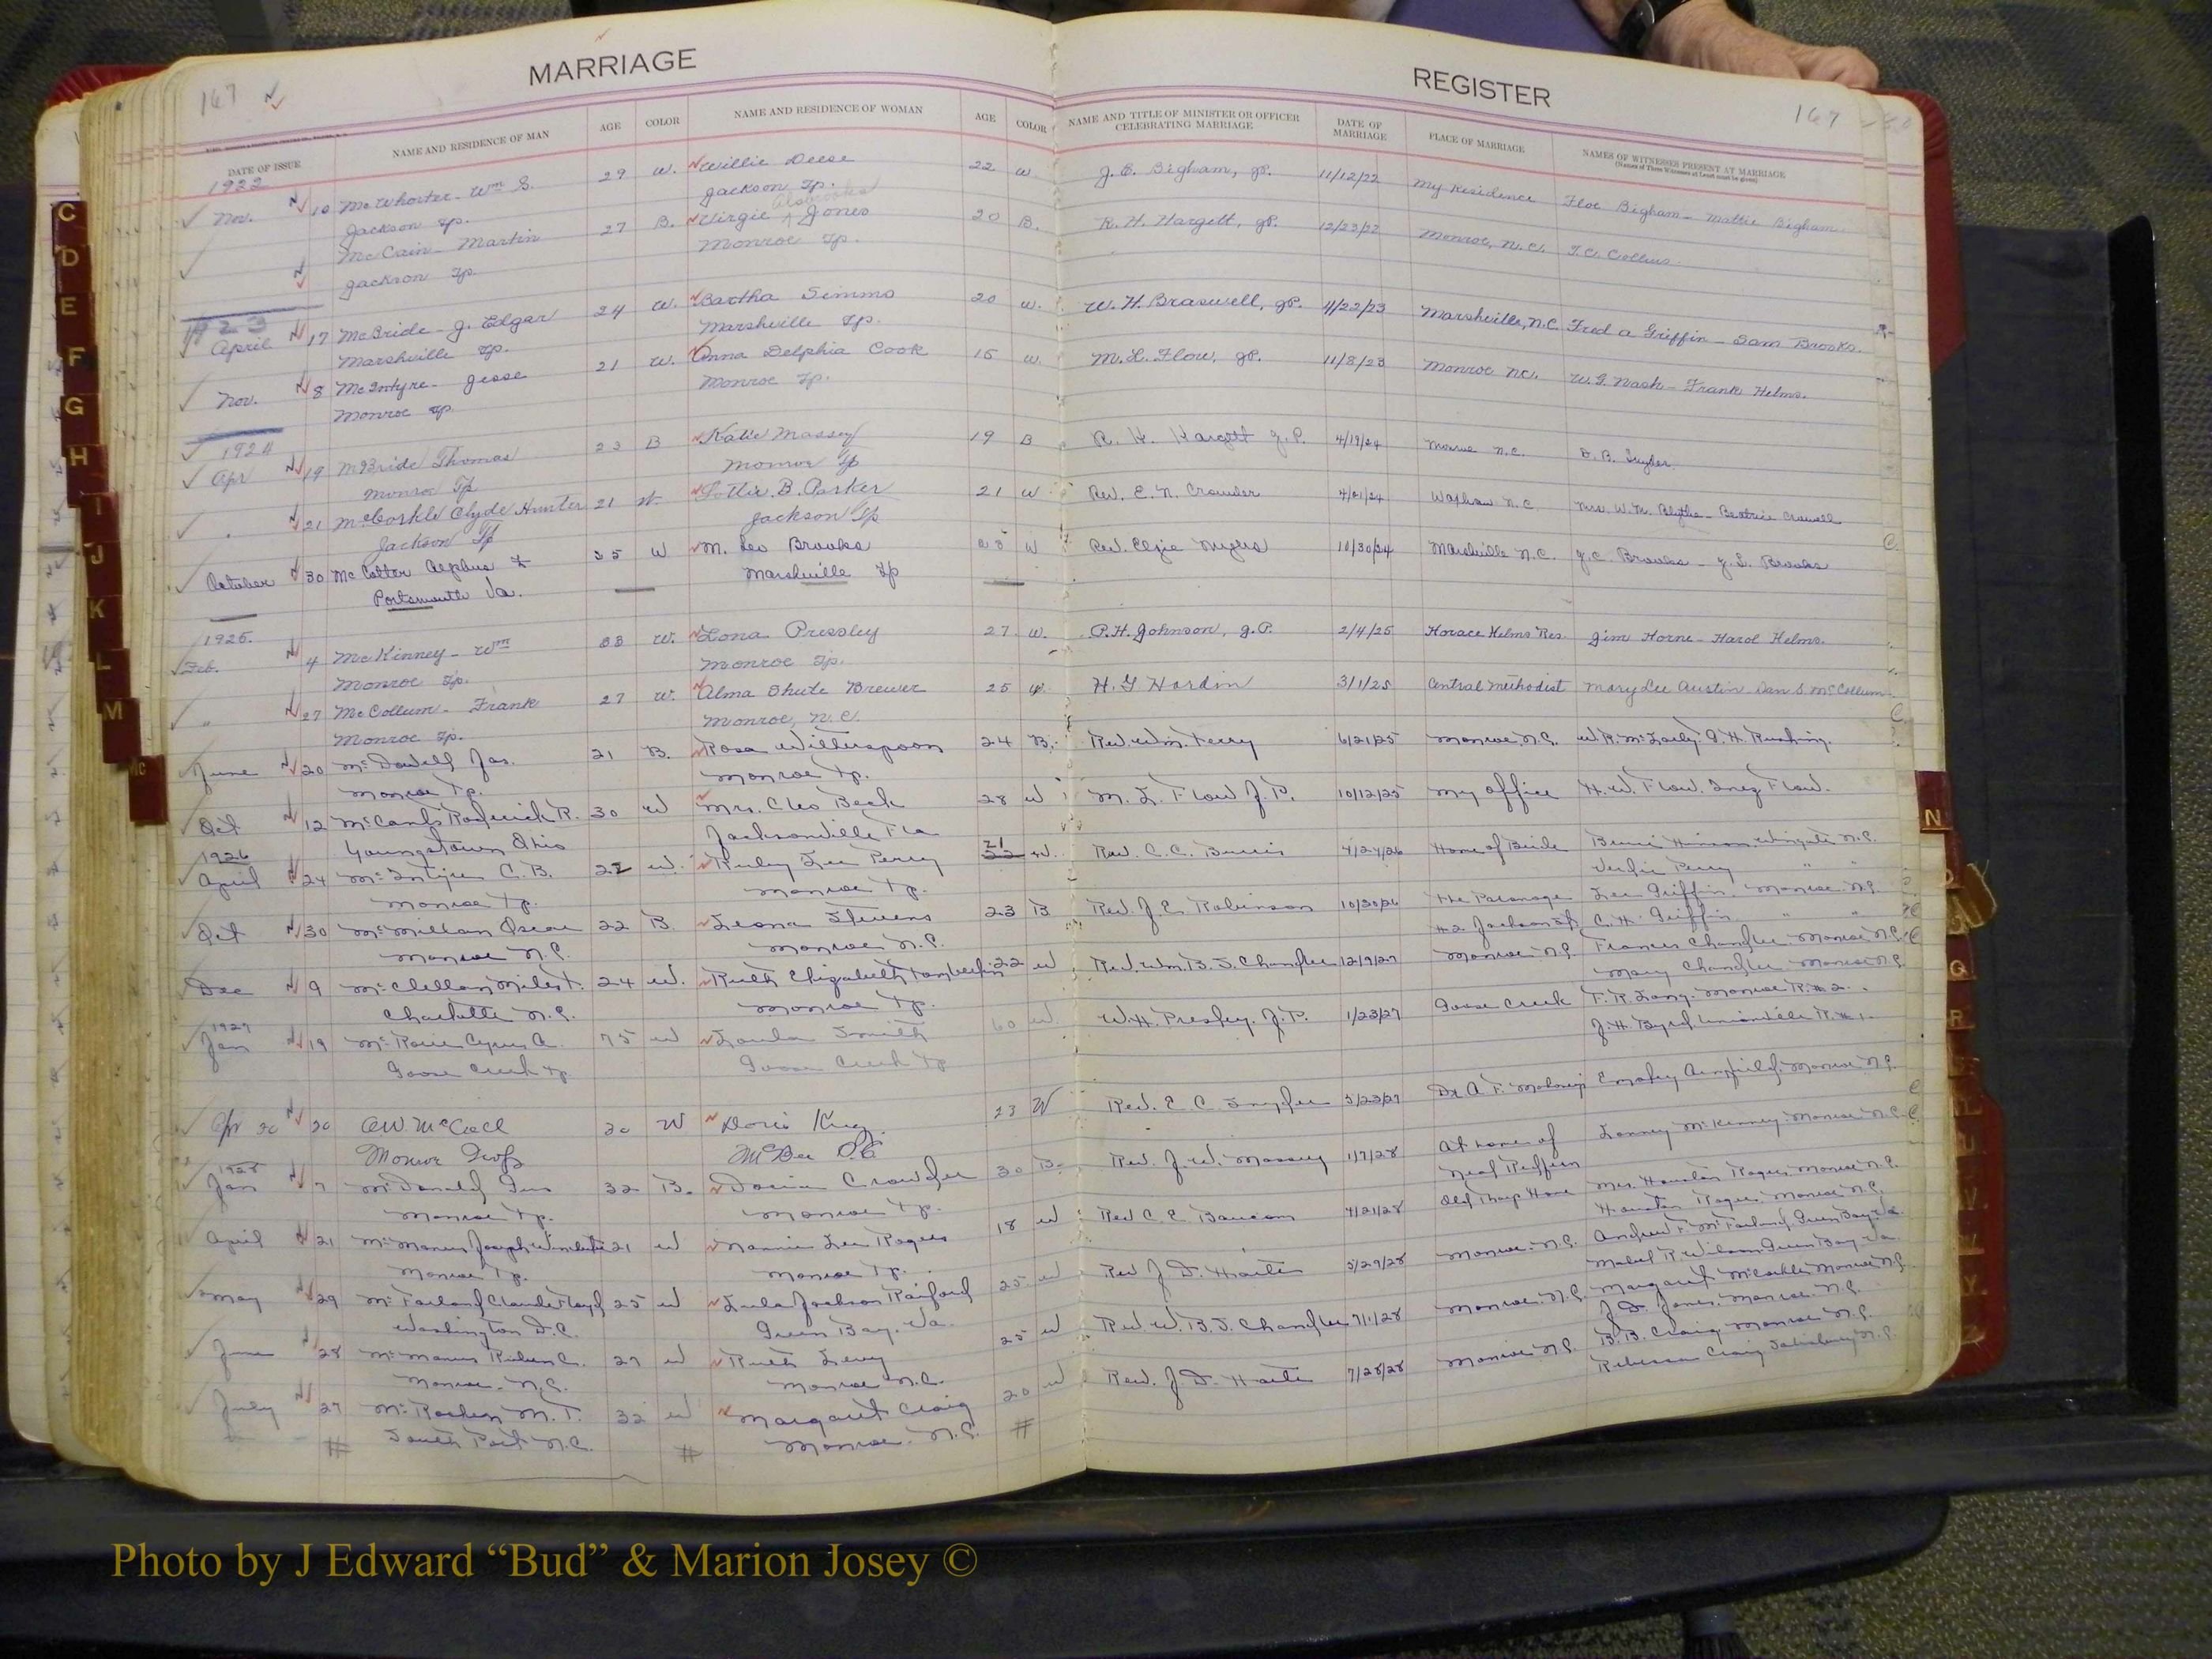 MARRIAGE
REGISTER
167
167
DATE OF ISSUE
NAME AND RESIDENCE OF MAN
AGE
COLOR
NAME AND RESIDENCE OF WOMAN
AGE
COLOR
NAME AND TITLE OF MINISTER OR OFFICER
CELEBRATING MARRIAGE
DATE OF
MARRIAGE
PLACE OF MARRIAGE
NAMES OF WITNESSES PRESENT AT MARRIAGE
(Names of Three Witnesses at Least must be given)
1922
Nov. 10 McWhorter - Wm S. 29 W. Willie Deese 22 W J. E. Bigham, JP. 11/12/22 My Residence Floe Bigham - Mattie Bigham
Jackson Tp. Jackson Tp.
McCain - Martin 27 B. Virgie Jones 20 B. R. H. Hargett, JP. 12/23/22 Monroe, N.C. T.C. Collins
Jackson Tp. Monroe Tp.
1923
April 17 McBride - J. Edgar 24 W. Bertha Simms 20 W. W. H. Braswell, JP. 4/22/23 Marshville, N.C. Fred A Griffin - Sam Brooks.
Marshville Tp. Marshville Tp.
Nov. 8 McIntyre - Jesse 21 W. Anna Delphia Cook 15 W. M. L. Flow, JP. 11/8/23 Monroe N.C. W. G. Nash - Frank Helms.
Monroe Tp. Monroe Tp.
1924
Apr 19 McBride Thomas 23 B Katie Massey 19 B R. H. Hargett J.P. 4/19/24 Monroe N.C. D. B. Snyder
Monroe Tp Monroe Tp
21 McCorkle Clyde Hunter 21 W. Lottie B. Parker 21 W Rev. E. N. Crowder 4/21/24 Waxhaw N.C. Mrs. W. M. Blythe - Beatrice Crowell
Jackson Tp Jackson Tp
October 30 McCotter Alpheus F 35 W M. Leo Brooks 23 W Rev. Elzie Myers 10/30/24 Marshville N.C. J.C. Brooks - J. S. Brooks
Portsmouth Va. Marshville Tp
1925.
Feb. 4 McKinney - Wm 33 W. Lona Pressley 27 W. P. H. Johnson, J.P. 2/4/25 Horace Helms Res. Jim Horne - Harol Helms.
Monroe Tp. Monroe Tp.
" 27 McCollum - Frank 27 W. Alma Shute Brewer 25 W. H. G Hardin 3/1/25 Central Methodist Mary Lee Austin Dan S. McCollum
Monroe Tp. Monroe, N.C.
June 20 McDowell Jas. 21 B. Rosa Witherspoon 24 B. Rev. Wm. Ferry 6/21/25 Monroe, N.C.
Monroe Tp. Monroe Tp.
Oct 12 Roderick R. 30 W Mrs. Cleo Beck 28 W M. L. Flow J.P. 10/12/25 My office H. W. Flow. Inez Flow.
Youngstown Ohio Jacksonville Fla
1926 21
April 24 McIntyre C. B. 22 W. Ruby Lee Perry 22 W. Rev. C. C. Burris 4/24/26 Home of Bride Hinson Wingate N.C.
Monroe Tp. Monroe Tp. Perry " "
Oct 30 McMillan Oscar 22 B. Leona Stevens 23 B Rev. J. E. Robinson 10/30/26 The Parsonage Lee Griffin Monroe N.C.
Monroe N.C. Monroe N.C. C. H. Griffin " "
Dec 9 McClellan Miles F. 24 W. Ruth Elizabeth 22 W Rev. Wm. B. S. Chandler Monroe N.C. Frances Chandler Monroe N.C.
Charlotte N.C. Monroe Tp. Mary Chandler Monroe N.C.
1927
Jan 19 Cyrus A. 75 W Smith 60 W. W. H. Presley. J.P. 1/23/27 Goose Creek F. R. Long. Monroe R. #2.
Goose Creek Tp. Goose Creek Tp J. H. Byrd Unionville R. #1.
Apr 30 30 30 W Doris King 23 W Rev. E. C. Snyder 5/23/27 Monroe N.C.
Monroe McBee S.C
1928
Jan 7 McDonald Gus 32 B. Crowder 30 B. Rev. J. W. Massey 1/7/28 At home of Lonney McKinney Monroe N.C.
Monroe Tp. Monroe Tp.
April 21 McManus Joseph 21 W Nannie Lee Rogers 18 W Rev C. E. Baucom 4/21/28 Mrs. Houston Rogers Monroe N.C.
Monroe Tp. Monroe Tp. Houston Rogers Monroe N.C.
May 29 McFarland Claude Floyd 25 W Lula Jackson Raiford 25 W Rev J. D. 5/29/28 Monroe. N.C. Andrew F. McFarland Green Bay Va.
Washington D.C. Green Bay. Va. Mabel R. Wilson Green Bay Va.
June 28 McManus C. 27 W Ruth 25 W Rev. W. B. S. Chandler 7/1/28 Monroe. N.C. Margaret McCorkle Monroe N.C.
Monroe. N.C. Monroe N.C. J. D. Jones. Monroe. N.C.
July 27 M. T. 32 W Margaret Craig 20 W Rev. J. D. 7/28/28 Monroe N.C. B. B. Craig Monroe N.C.
South Port N.C. Monroe. N.C. Rebecca Craig Salisbury N.C.
# # #
C
D
E
F
G
H
I
J
K
L
M
Mc
N
Q
R
Photo by J Edward “Bud” & Marion Josey ©